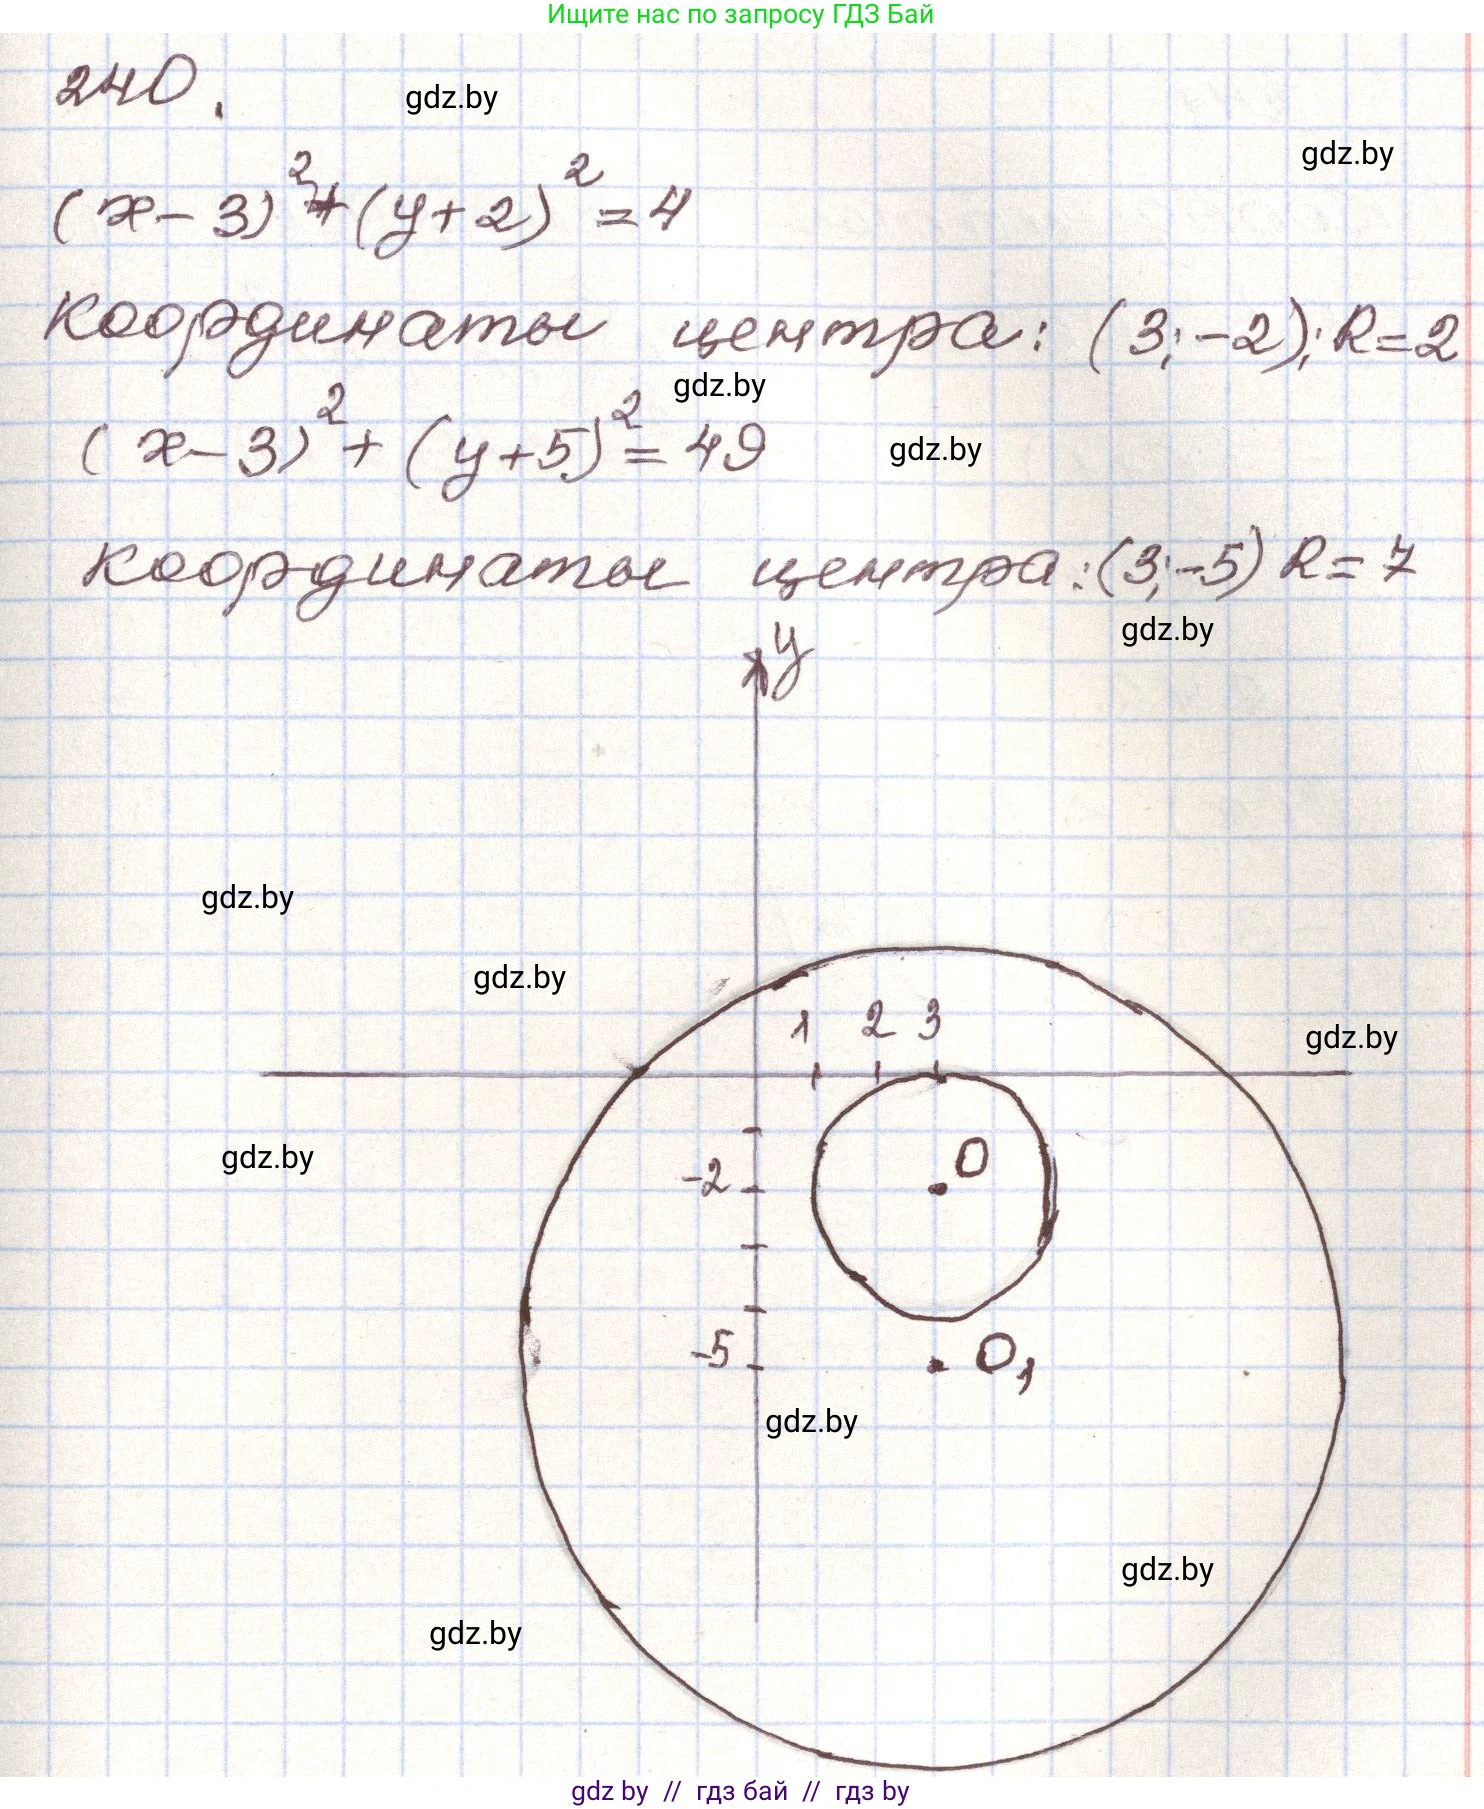 Ищите нас по запросу ГДЗ Бай
240.
gdz.by
gdz.by
(x-3)²+(y+2)²=4
координаты центра: (3;-2); R=2
gdz.by
(x-3)²+(y+5)²=49
gdz.by
координаты центра: (3;-5) R=7
gdz.by
y
gdz.by
gdz.by
1 2 3
gdz.by
gdz.by
O
-2
-5
O₁
gdz.by
gdz.by
gdz.by
gdz by // гдз бай // гдз by